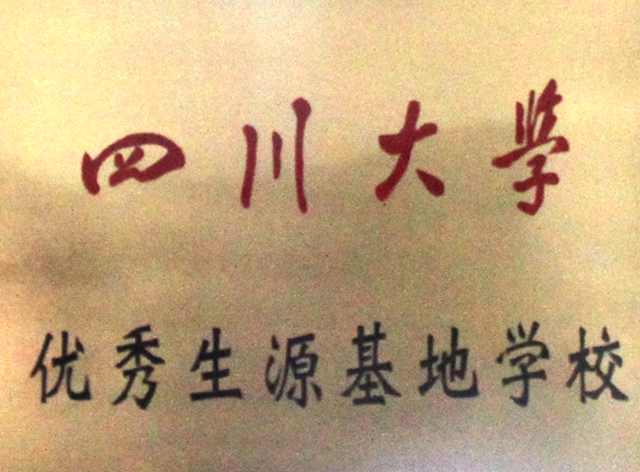 四川大學
优秀生源基地学校